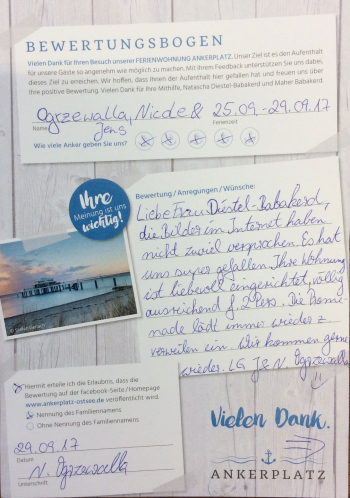 BEWERTUNGSBOGEN
Vielen Dank für Ihren Besuch unserer FERIENWOHNUNG ANKERPLATZ. Unser Ziel ist es den Aufenthalt
für unsere Gäste so angenehm wie möglich zu machen. Mit Ihrem Feedback unterstützen Sie uns dabei,
dieses Ziel zu erreichen. Wir hoffen, dass Ihnen der Aufenthalt hier gefallen hat und freuen uns über
Ihre positive Bewertung. Vielen Dank für Ihre Mithilfe, Natascha Diestel-Babakerd und Maher Babakerd.
Ogrzewalla, Nicole & 25.09.-29.09.17
Name Jens Ferienzeit
Wie viele Anker geben Sie uns?
Ihre
Meinung ist uns
wichtig!
Bewertung / Anregungen / Wünsche:
Liebe Frau Diestel-Babakerd,
die Bilder im Internet haben
nicht zuviel versprochen. Es hat
uns super gefallen. Ihre Wohnung
ist liebevoll eingerichtet, völlig
ausreichend f. 2 Pers. Die Prome-
nade lädt immer wieder z.
verweilen ein. Wir kommen gerne
wieder. LG J & N. Ogrzewalla
Hiermit erteile ich die Erlaubnis, dass die
Bewertung auf der Facebook-Seite / Homepage
www.ankerplatz-ostsee.de veröffentlicht wird.
Nennung des Familiennamens
Ohne Nennung des Familiennamens.
29.09.17
Datum
N. Ogrzewalla
Unterschrift
Vielen Dank.
ANKERPLATZ